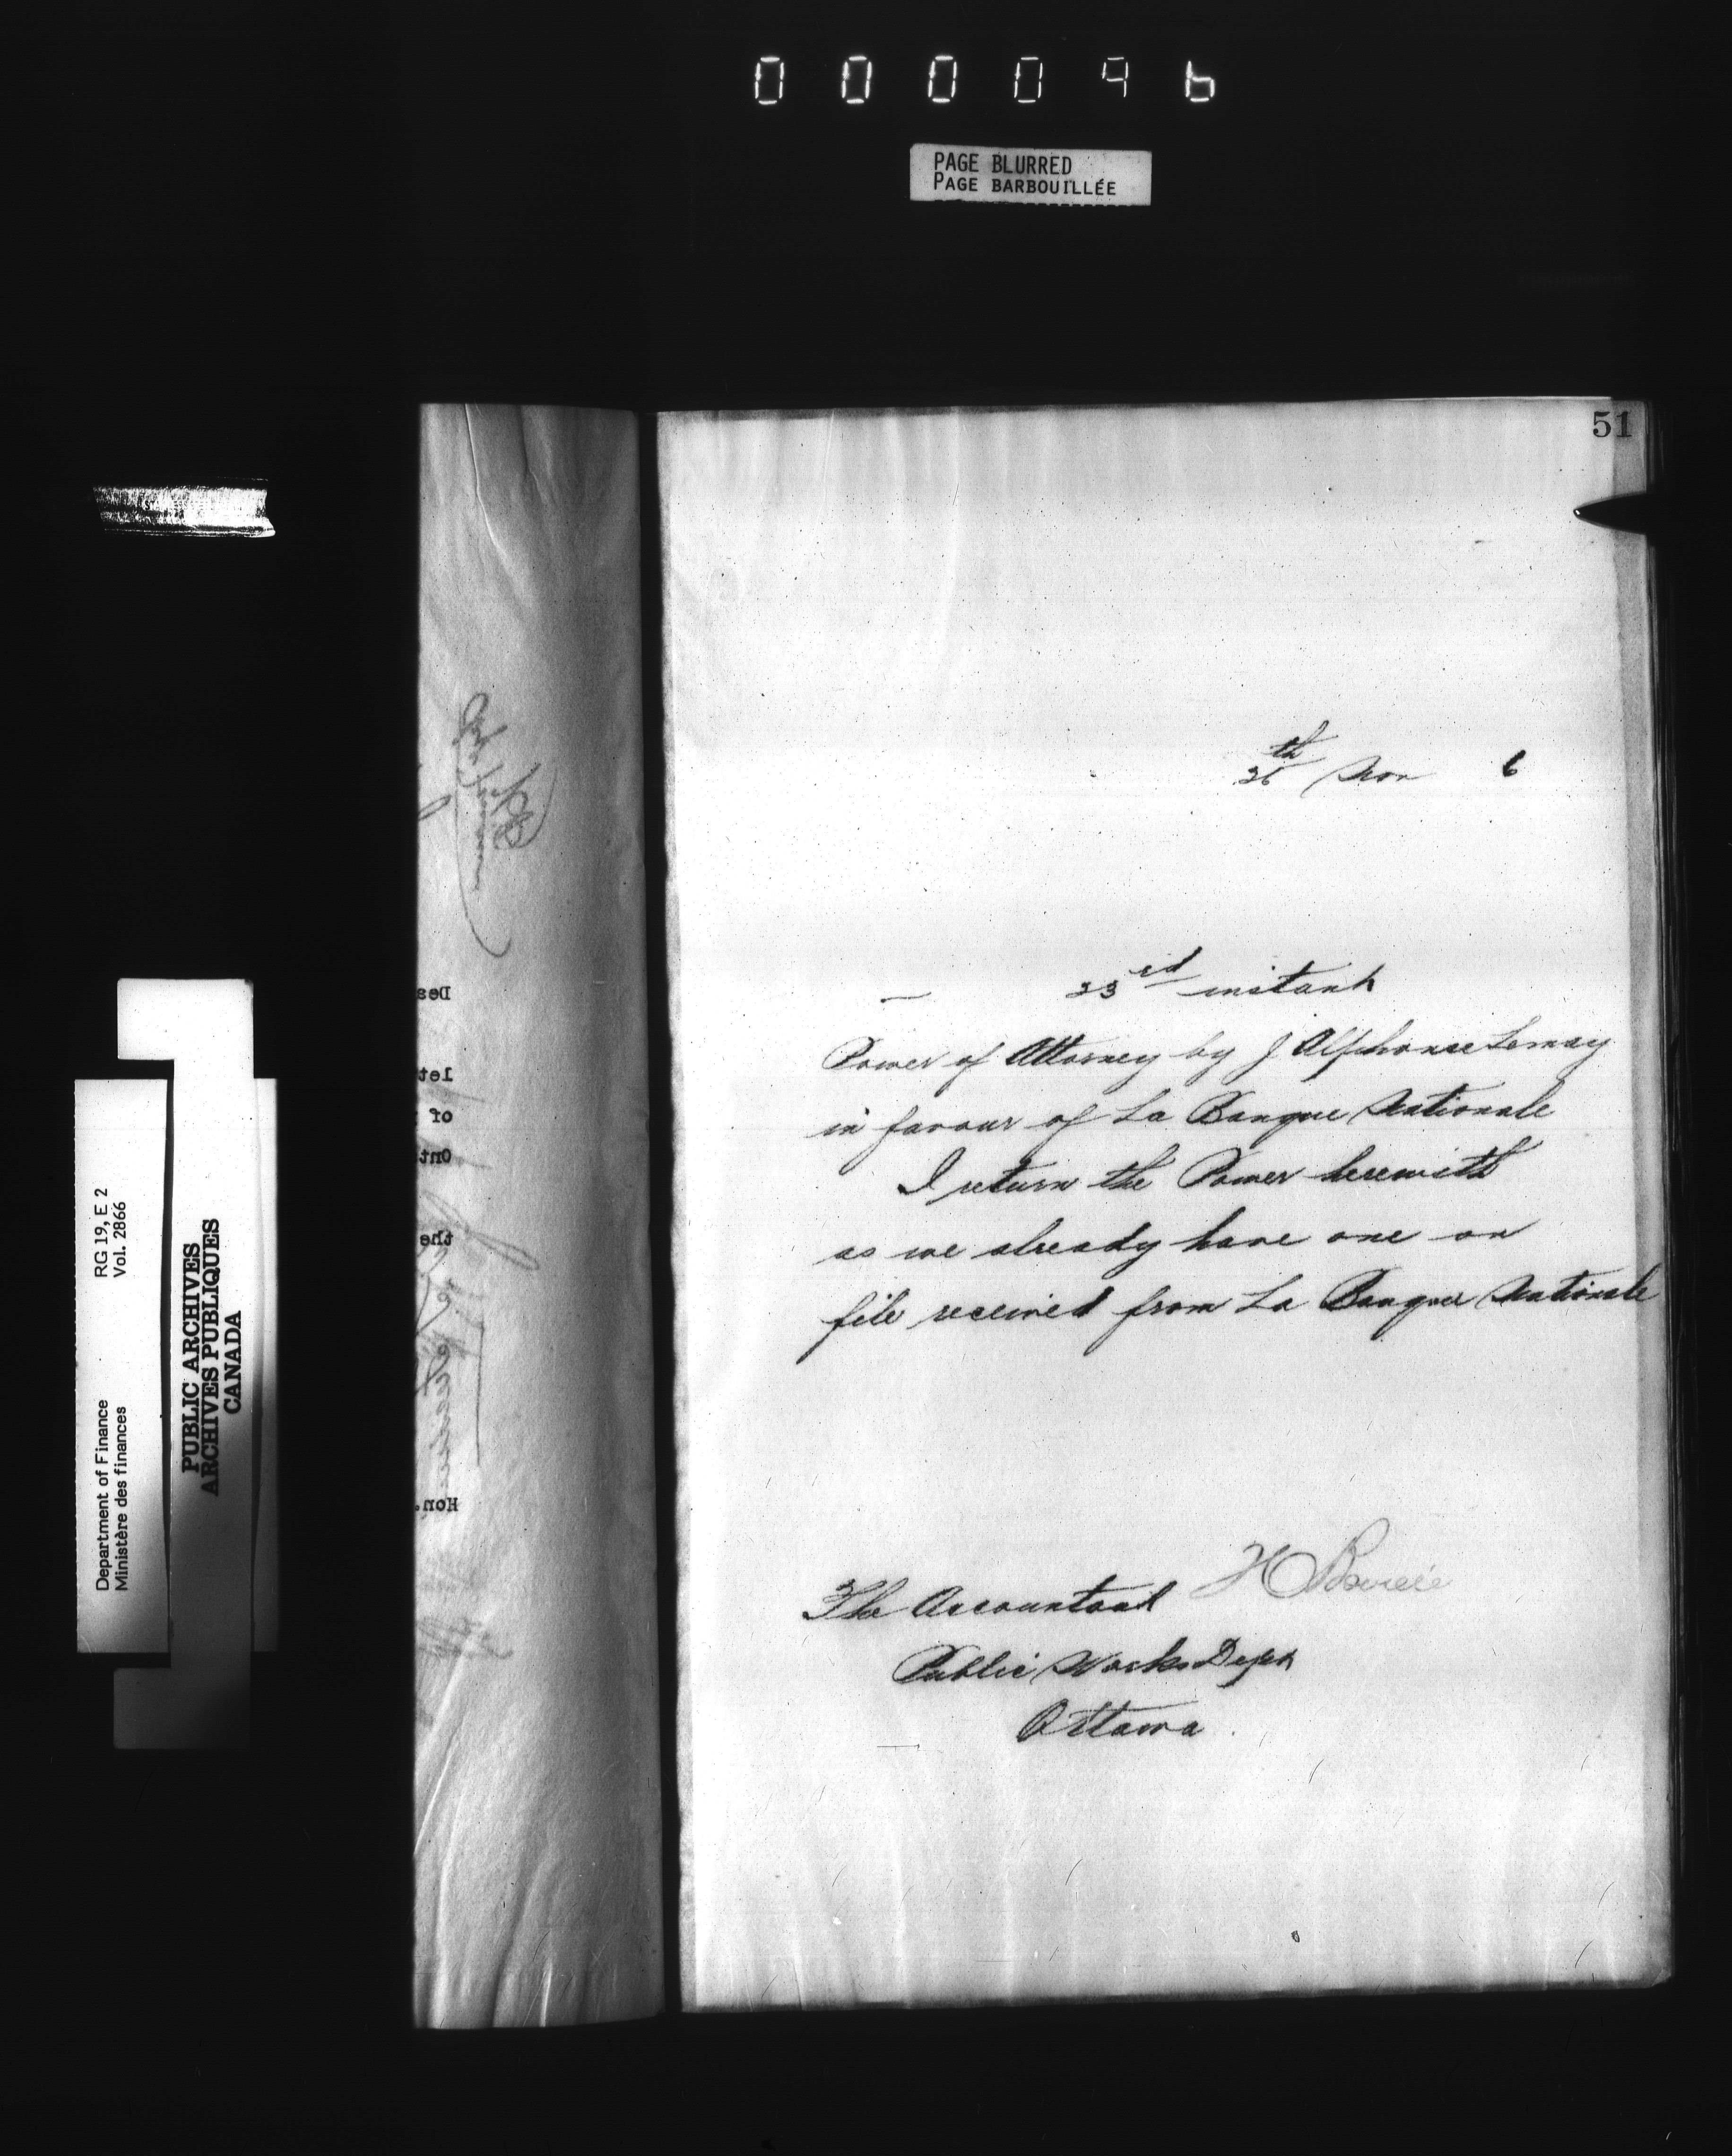 000096
PAGE BLURRED
PAGE BARBOUILLÉE
51
26th Nov 6
23rd instant
Power of Attorney by J Alphonse Lemay
in favour of La Banque Nationale
I return the Power herewith
as we already have one on
file received from La Banque Nationale
The Accountant
Public Works Dept
Ottawa.
RG 19, E 2
Vol. 2866
Department of Finance
Ministère des finances
PUBLIC ARCHIVES
ARCHIVES PUBLIQUES
CANADA
Dea
let
of
Ont
the
Hon.